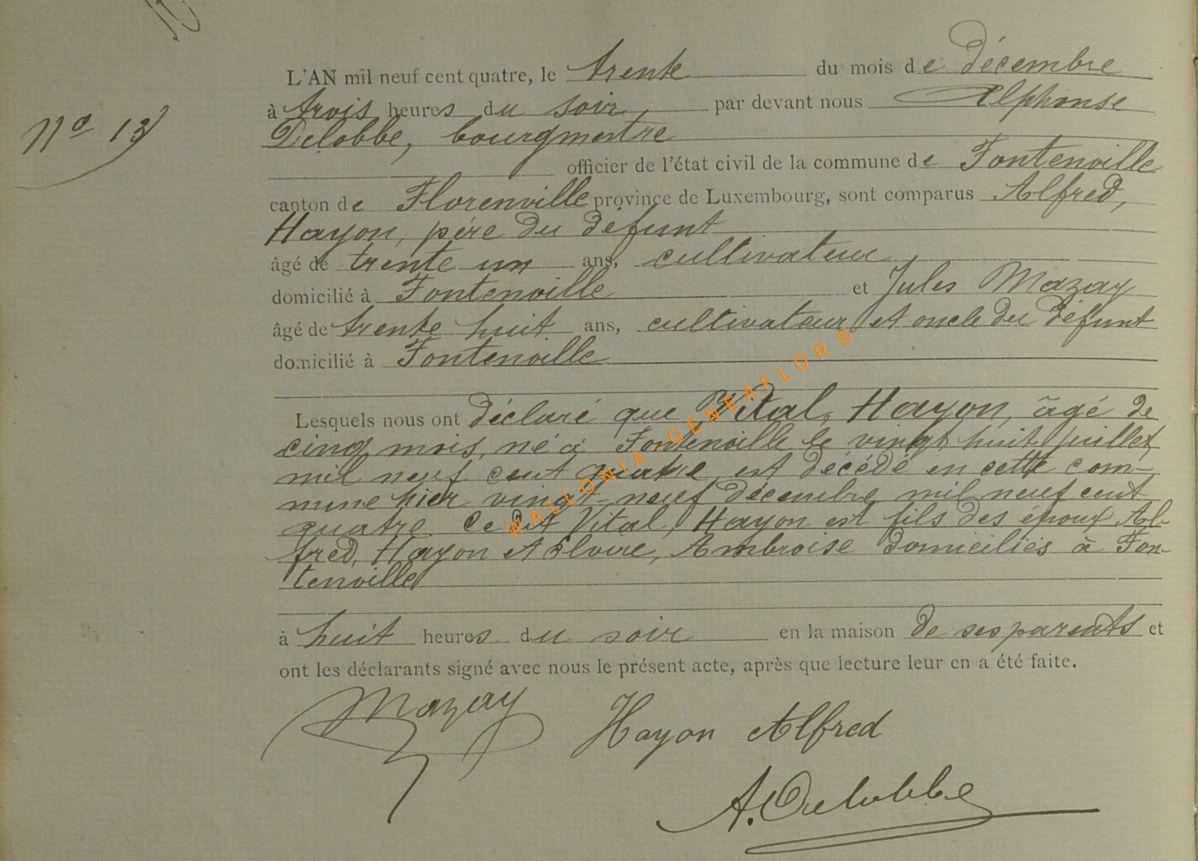 L'AN mil neuf cent quatre, le trente du mois de décembre
à trois heures du soir par devant nous Alphonse
Nº 13
Delobbe, bourgmestre
officier de l'état civil de la commune de Fontenoille
canton de Florenville province de Luxembourg, sont comparus Alfred,
Hayon, père du défunt
âgé de trente un ans, cultivateur
domicilié à Fontenoille et Jules Mazay
âgé de trente huit ans, cultivateur et oncle du défunt
domicilié à Fontenoille
WALLONIA GENEAFLOR ®
Lesquels nous ont déclaré que Vital, Hayon, âgé de
cinq mois, né à Fontenoille le vingt huit juillet
mil neuf cent quatre, est décédé en cette com-
mune hier vingt-neuf décembre mil neuf cent
quatre. Cedit Vital, Hayon est fils des époux Al-
fred, Hayon et Ambroise domiciliés à Fon-
tenoille
à huit heures du soir en la maison de ses parents et
ont les déclarants signé avec nous le présent acte, après que lecture leur en a été faite.
Mazay
Hayon Alfred
A. Delobbe